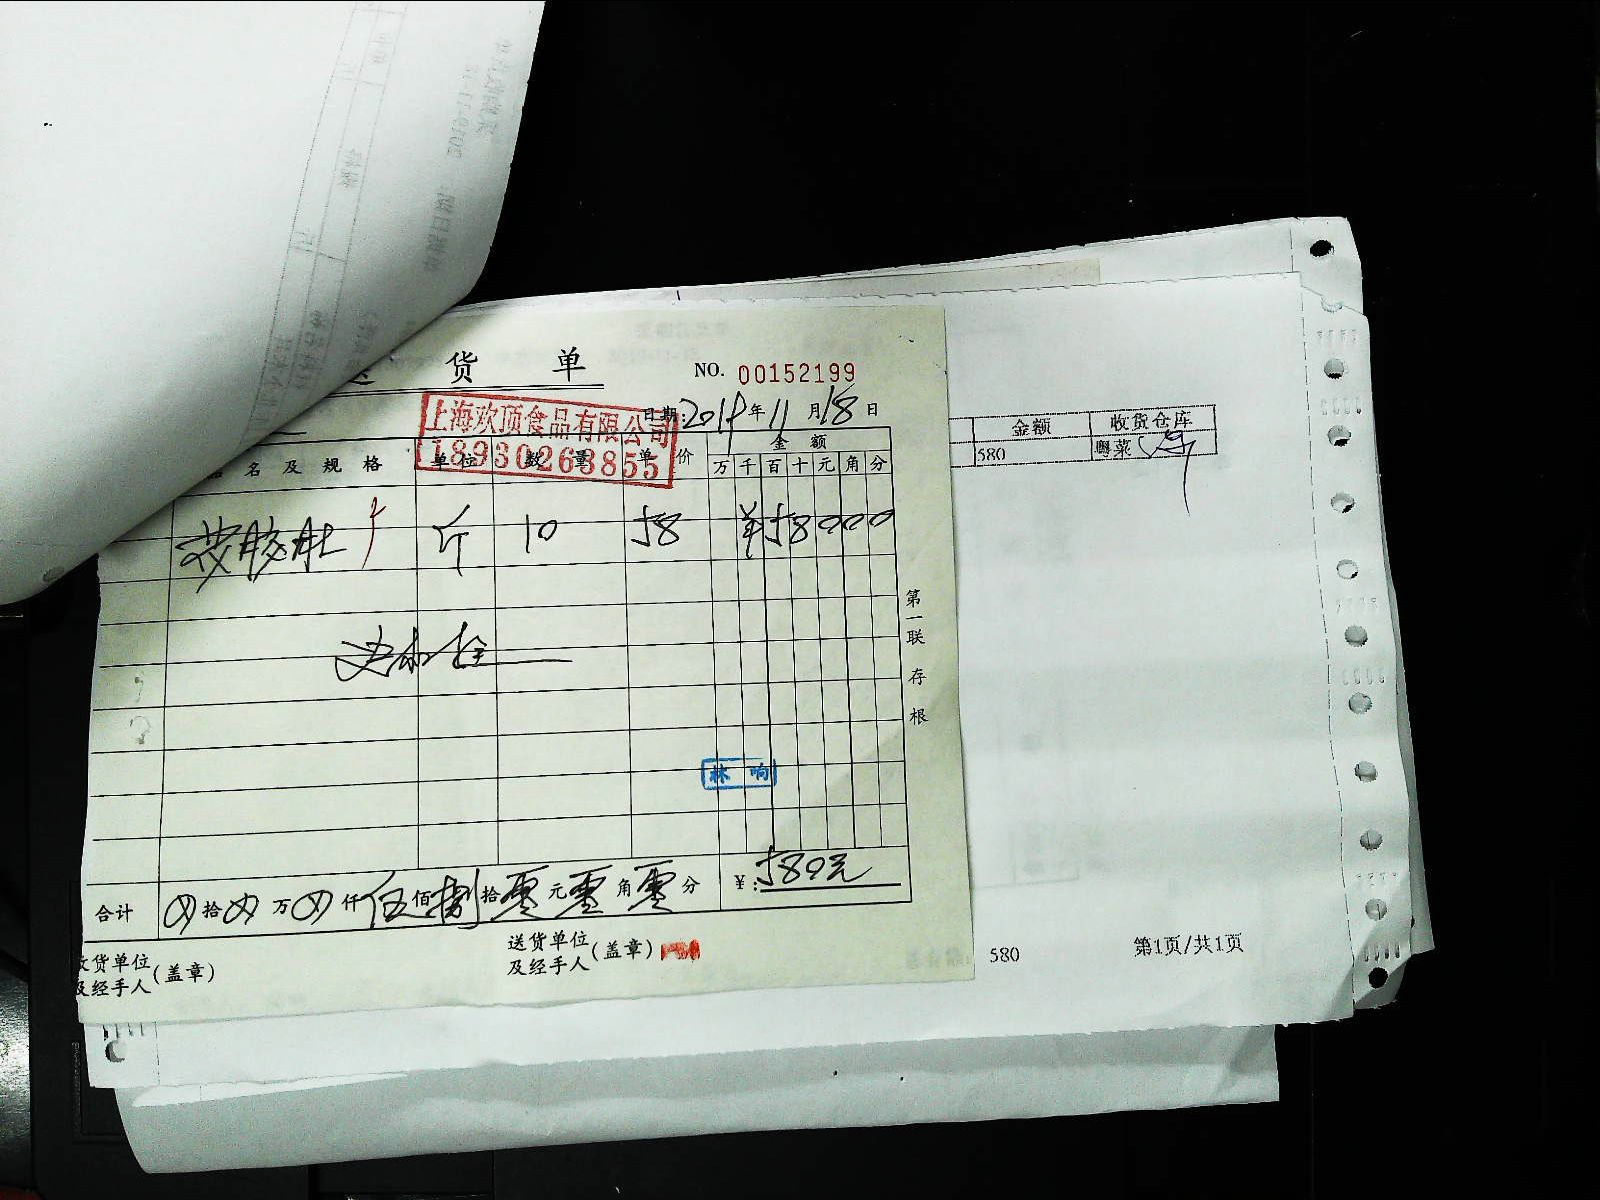 货 单
NO. 00152199
上海欢顶食品有限公司
18930263855
日期: 年11月18日
名及规格 单位 数量 单价 金额
万 千 百 十 元 角 分
斤 10 58 ¥58000
第一联 存根
林响
合计 拾 万 仟伍佰捌拾零元零角零分 ¥: 580元
收货单位
及经手人(盖章)
送货单位
及经手人(盖章)
金额 收货仓库
580 粤菜
580 第1页/共1页